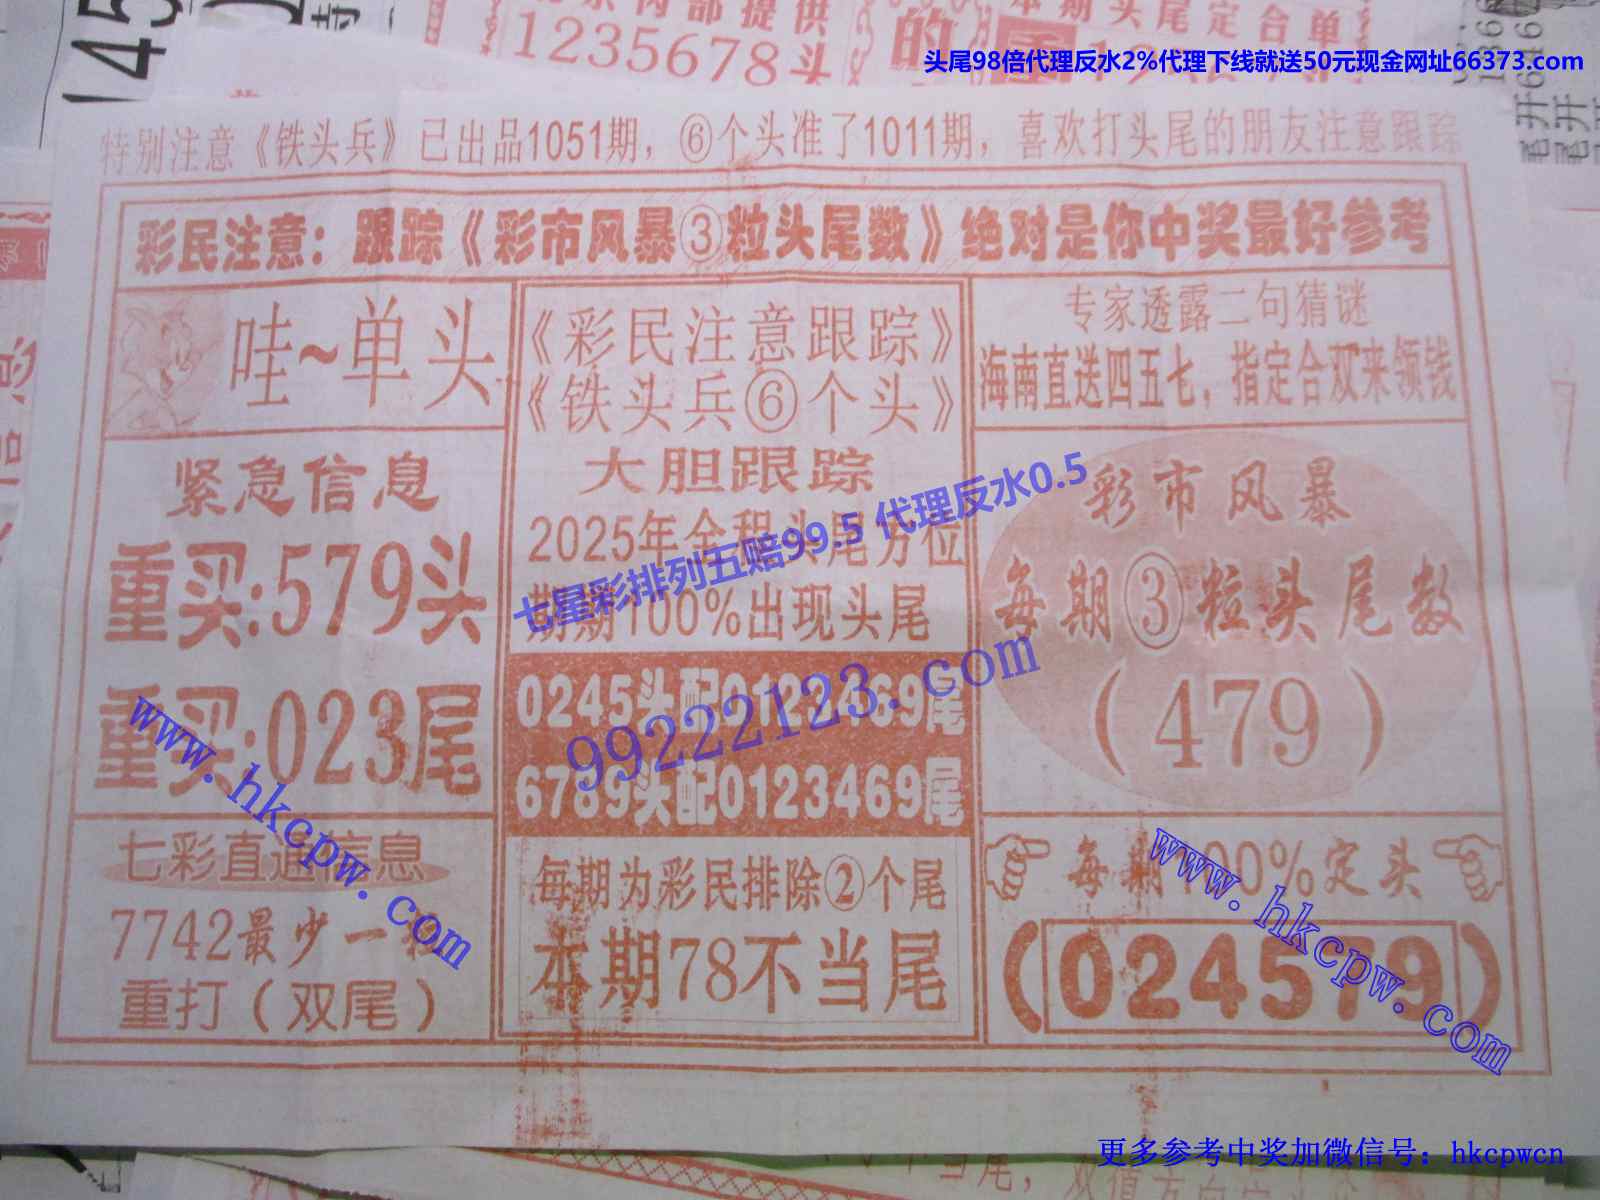 头尾98倍代理反水2%代理下线就送50元现金网址66373.com
1235678头
特别注意《铁头兵》已出品1051期，⑥个头准了1011期，喜欢打头尾的朋友注意跟踪
彩民注意：跟踪《彩市风暴③粒头尾数》绝对是你中奖最好参考
哇~单头
紧急信息
重买:579头
重买:023尾
七彩直通信息
7742最少一
重打（双尾）
《彩民注意跟踪》
《铁头兵⑥个头》
大胆跟踪
2025年全程头尾方位
期期100%出现头尾
0245头配0122469尾
6789头配0123469尾
每期为彩民排除②个尾
本期78不当尾
专家透露二句猜谜
海南直送四五七，指定合双来领钱
彩市风暴
每期③粒头尾数
（479）
每期100%定头
（024579）
七星彩排列五赔99.5 代理反水0.5
99222123.com
www.hkcpw.com
www.hkcpw.com
更多参考中奖加微信号：hkcpwcn